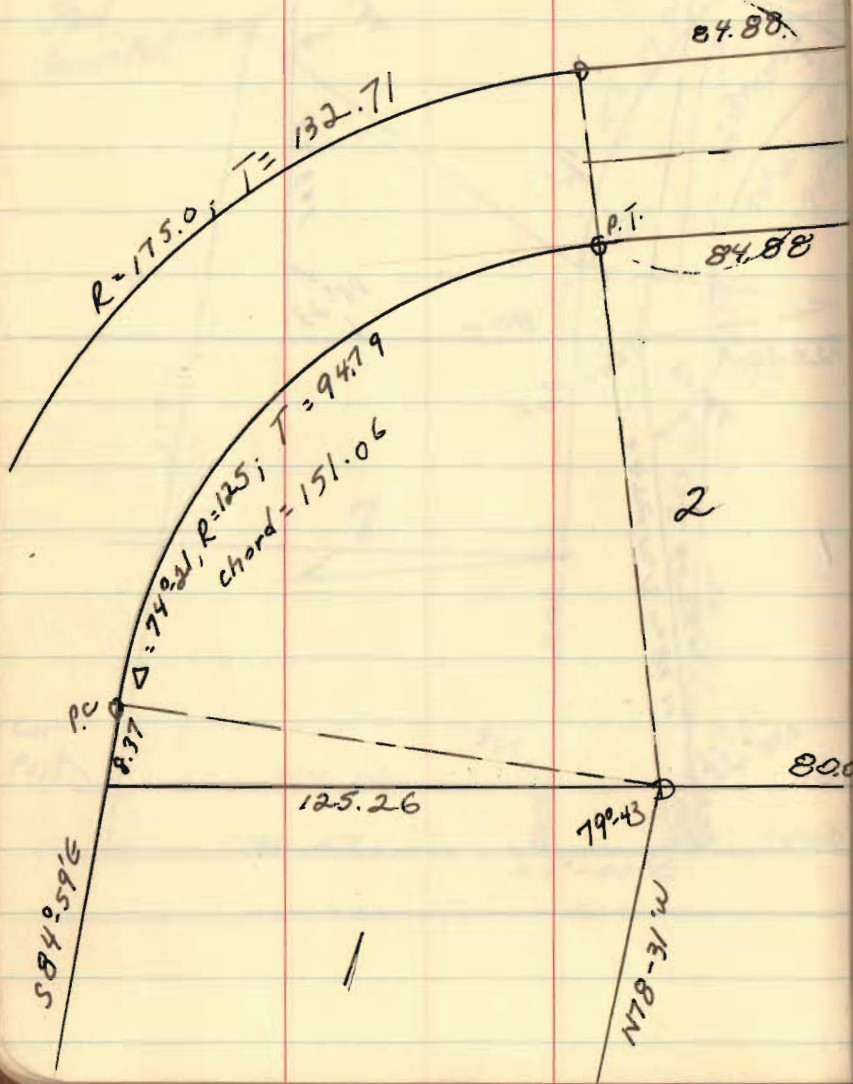 84.88
R=175.0; T=132.71
P.T.
84.88
Δ=74°-21, R=125; T=94.79
chord=151.06
2
P.C
8.37
80.0
125.26
79°-43
S84°-59'E
N78-31'W
1